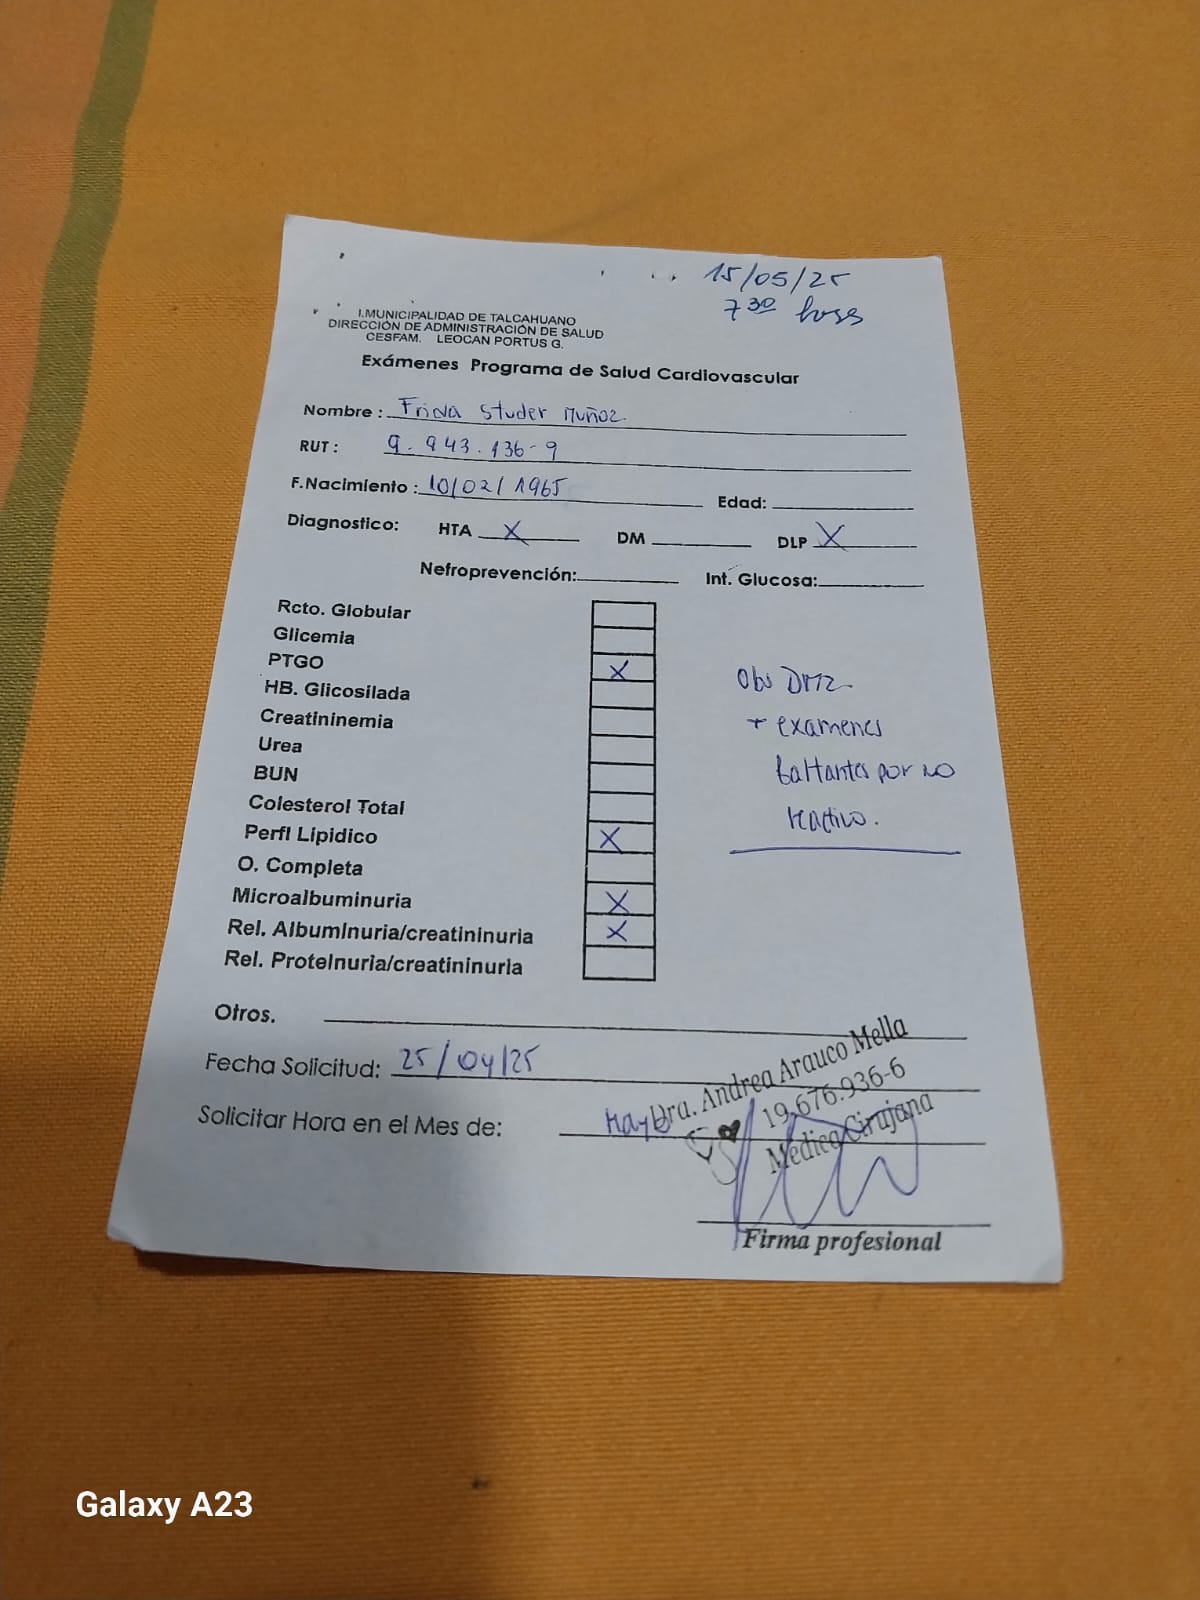 15/05/25
7³⁰ horas
I.MUNICIPALIDAD DE TALCAHUANO
DIRECCIÓN DE ADMINISTRACIÓN DE SALUD
CESFAM. LEOCAN PORTUS G.
Exámenes Programa de Salud Cardiovascular
Nombre : Frida Studer Muñoz.
RUT : 9.943.136-9
F.Nacimiento : 10/02/1965 Edad:
Diagnostico: HTA X DM DLP X
Nefroprevención: Int. Glucosa:
Rcto. Globular
Glicemia
PTGO X
HB. Glicosilada
Creatininemia
Urea
BUN
Colesterol Total
Perfl Lipidico X
O. Completa
Microalbuminuria X
Rel. Albuminuria/creatininuria X
Rel. Proteinuria/creatininuria
Obs DM2
+ examenes
faltantes por no
reactivo.
Otros.
Fecha Solicitud: 25/04/25
Solicitar Hora en el Mes de:
Dra. Andrea Arauco Mella
19.676.936-6
Médico Cirujana
Firma profesional
Galaxy A23